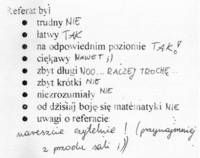 Referat był
• trudny NIE
• łatwy TAK
• na odpowiednim poziomie TAK!
• ciekawy NAWET ;)
• zbyt długi NOO... RACZEJ TROCHĘ...
• zbyt krótki NIE
• niezrozumiały NIE
• od dzisiaj boję się matematyki NIE
• uwagi o referacie:
nareszcie czytelnie! (przynajmniej
z przodu sali ;))